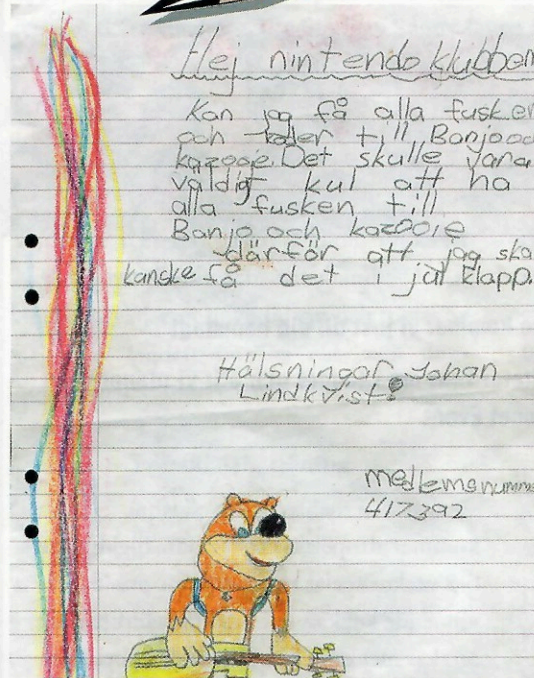 Hej nintendo klubben
Kan jag få alla fusken
och koder till Banjo och
kazooie. Det skulle vara
väldigt kul att ha
alla fusken till
Banjo och kazooie
därför att jag ska
kanske få det i jul klapp.
Hälsningar Johan
Lindkvist
medlemsnumme
417392